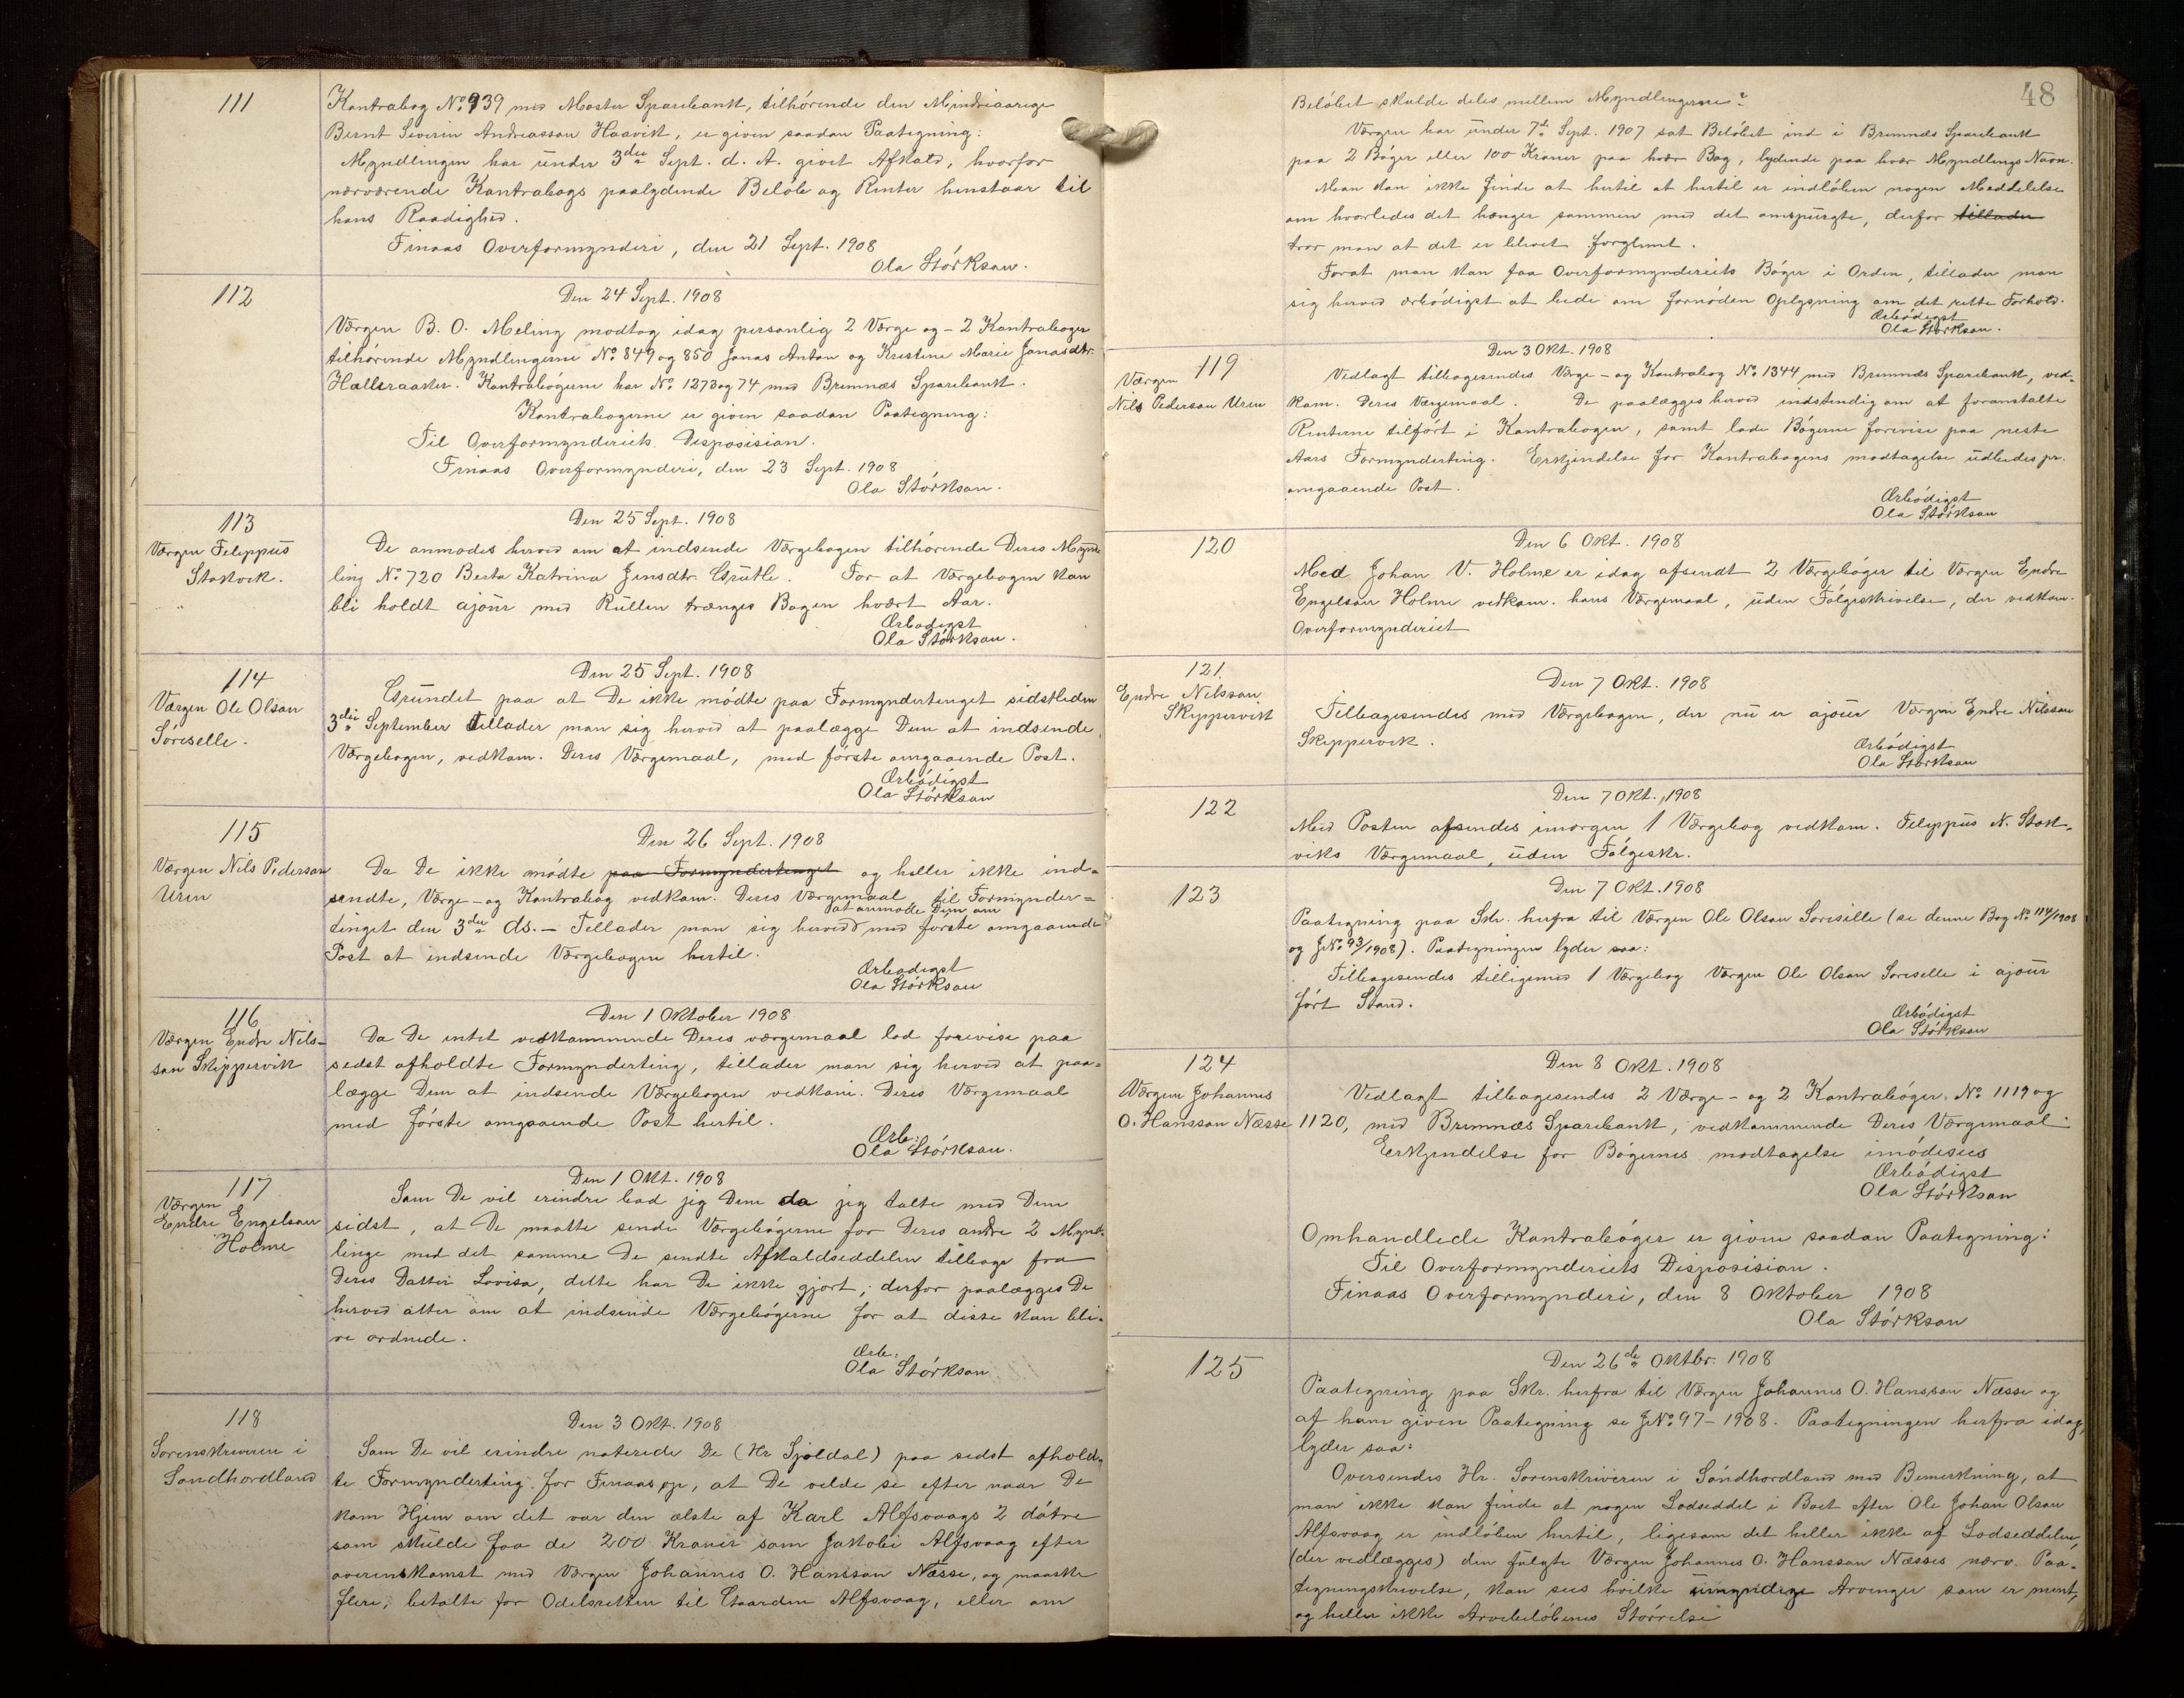 111
Kontrabog No. 939 med Moster Sparebank, tilhørende den Mindreaarige
Bernt Severin Andreasson Haavik, er given saadan Paategning:
Myndlingen har under 3die Sept. d. A. givet Afkald, hvorfor
nærværende Kontrabogs paalydende Beløb og Renter henstaar til
hans Raadighed.
Finaas Overformynderi, den 21 Sept. 1908
Ola Størkson.
112
Den 24 Sept. 1908
Værgen B. O. Meling modtog idag personlig 2 Værge og - 2 Kontrabøger
tilhørende Myndlingerne No. 849 og 850 Jonas Anton og Kristine Marie Jonasdtr.
Hallsraaker. Kontrabøgerne har No. 1273 og 74 med Bremnæs Sparebank.
Kontrabøgerne er given saadan Paategning:
Til Overformynderiets Disposision.
Finaas Overformynderi, den 23 Sept. 1908
Ola Størkson.
113
Værgen Filippus
Stokvik.
Den 25 Sept. 1908
De anmodes herved om at indsende Værgebogen tilhørende Deres Mynd-
ling No. 720 Berta Katrina Jensdtr. Grutle. For at Værgebogen kan
bli holdt ajour med Rullen trænges Bogen hvært Aar.
Ærbødigst
Ola Størkson.
114
Værgen Ole Olson
Søreselle.
Den 25 Sept. 1908
Grundet paa at De ikke mødte paa Formyndertinget sidstleden
3die September tillader man sig herved at paalægge Dem at indsende
Værgebogen, vedkom. Deres Værgemaal, med første omgaaende Post.
Ærbødigst
Ola Størkson
115
Værgen Nils Pederson
Uren
Den 26 Sept. 1908
Da De ikke mødte paa Formyndertinget og heller ikke ind-
sendte, Værge- og Kontrabog vedkom. Deres Værgemaal til Formynder-
at anmode Dem om
tinget den 3die ds. - Tillader man sig herved med første omgaaende
Post at indsende Værgebogen hertil.
Ærbødigst
Ola Størkson
116
Værgen Endre Nils-
son Skippervik
Den 1 Oktober 1908
Da De intet vedkommende Deres værgemaal lod forevise paa
sedst afholdte Formynderting, tillader man sig herved at paa-
lægge Dem at indsende Værgebogen vedkom. Deres Værgemaal
med første omgaaende Post hertil.
Ærb.
Ola Størkson.
117
Værgen
Endre Engelson
Holme
Den 1 Okt. 1908
Som De vil erindre bad jeg Dem da jeg talte med Dem
sidst, at De maatte sende Værgebøgerne for Deres andre 2 Mynd-
linge med det samme De sendte Afkaldseddelen tilbage fra
Deres Datter Lovisa, dette har De ikke gjort; derfor paalægges De
herved atter om at indsende Værgebøgerne for at disse kan bli-
ve ordnede.
Ærb.
Ola Størkson
118
Sorenskriveren i
Søndhordland
Den 3 Okt. 1908
Som De vil erindre noterede De (Hr Sjoldal) paa sedst afhold-
te Formynderting for Finaas op, at De vilde se efter naar De
kom Hjem om det var den ælste af Karl Alfsvaags 2 døtre
som skulde faa de 200 Kroner som Jakobi Alfsvaag efter
overenskomst med Værgen Johannes O. Hansson Næsse, og maaske
flere, betalte for Odelsretten til Gaarden Alfsvaag, eller om
48
Beløbet skulde deles mellem Myndlingerne?
Værgen har under 7de Sept. 1907 sat Beløbet ind i Bremnæs Sparebank
paa 2 Bøger eller 100 Kroner paa hver Bog, lydende paa hver Myndlings Navn.
Man kan ikke finde at hertil at hertil er indløben nogen Meddelelse
om hvorledes det hænger sammen med det omspurgte, derfor tillader
tror man at det er blevet forglemt.
Forat man kan faa Overformynderiets Bøger i Orden, tillader man
sig herved ærbødigst at bede om fornøden Oplysning om det rette Forhold.
Ærbødigst
Ola Størkson.
119
Værgen
Nils Pederson Uren
Den 3 Okt. 1908
Vedlagt tilbagesendes Værge- og Kontrabog No. 1344 med Bremnæs Sparebank, ved-
kom. Deres Værgemaal. De paalægges herved indstendig om at foranstalte
Renterne tilført i Kontrabogen, samt lade Bøgerne forevise paa neste
Aars Formynderting. Erkjendelse for Kontrabogens modtagelse udbedes pr.
omgaaende Post.
Ærbødigst
Ola Størkson
120
Den 6 Okt. 1908
Med Johan V. Holme er idag afsendt 2 Værgebøger til Værgen Endre
Engelson Holme vedkom. hans Værgemaal, uden Følgeskrivelse, der vedkom.
Overformynderiet
121.
Endre Nilsson
Skippervik
Den 7 Okt. 1908
Tilbagesendes med Værgebogen, der nu er ajour Værgen Endre Nilsson
Skippervik.
Ærbødigst
Ola Størkson
122
Den 7 Okt. 1908
Med Posten afsendes imorgen 1 Værgebog vedkom. Filippus N. Stok-
viks Værgemaal, uden Følgeskr.
123
Den 7 Okt. 1908
Paategning paa Skr. herfra til Værgen Ole Olson Soreselle (se denne Bog No. 114/1908
og JNo. 93/1908). Paategningen lyder saa:
Tilbagesendes tilligemed 1 Værgebog Værgen Ole Olson Soreselle i ajour
ført Stand.
Ærbødigst
Ola Størkson
124
Værgen Johannes
O. Hansson Næsse
Den 8 Okt. 1908
Vedlagt tilbagesendes 2 Værge- og 2 Kontrabøger. No. 1119 og
1120, med Bremnæs Sparebank, vedkommende Deres Værgemaal.
Eerkjendelse for Bøgernes modtagelse imødesees
Ærbødigst
Ola Størkson
Omhandlede Kontrabøger er given saadan Paategning:
Til Overformynderiets Disposision.
Finaas Overformynderi, den 8 Oktober 1908
Ola Størkson
125
Den 26de Oktbr. 1908
Paategning paa Skr. herfra til Værgen Johannes O. Hansson Næsse og
af ham given Paategning se JNo. 97-1908. Paategningen herfra idag,
lyder saa:
Oversendes Hr. Sorenskriveren i Søndhordland med Bemerkning, at
man ikke kan finde at nogen Lodseddel i Boet efter Ole Johan Olson
Alfsvaag er indløben hertil, ligesom det heller ikke af Lodseddelen,
(der vedlægges) den fulgte Værgen Johannes O. Hansson Næsses nærv. Paa-
tegningskrivelse, kan sees hvilke umyndige Arvinger som er ment,
og heller ikke Arvebeløbenes Størrelse